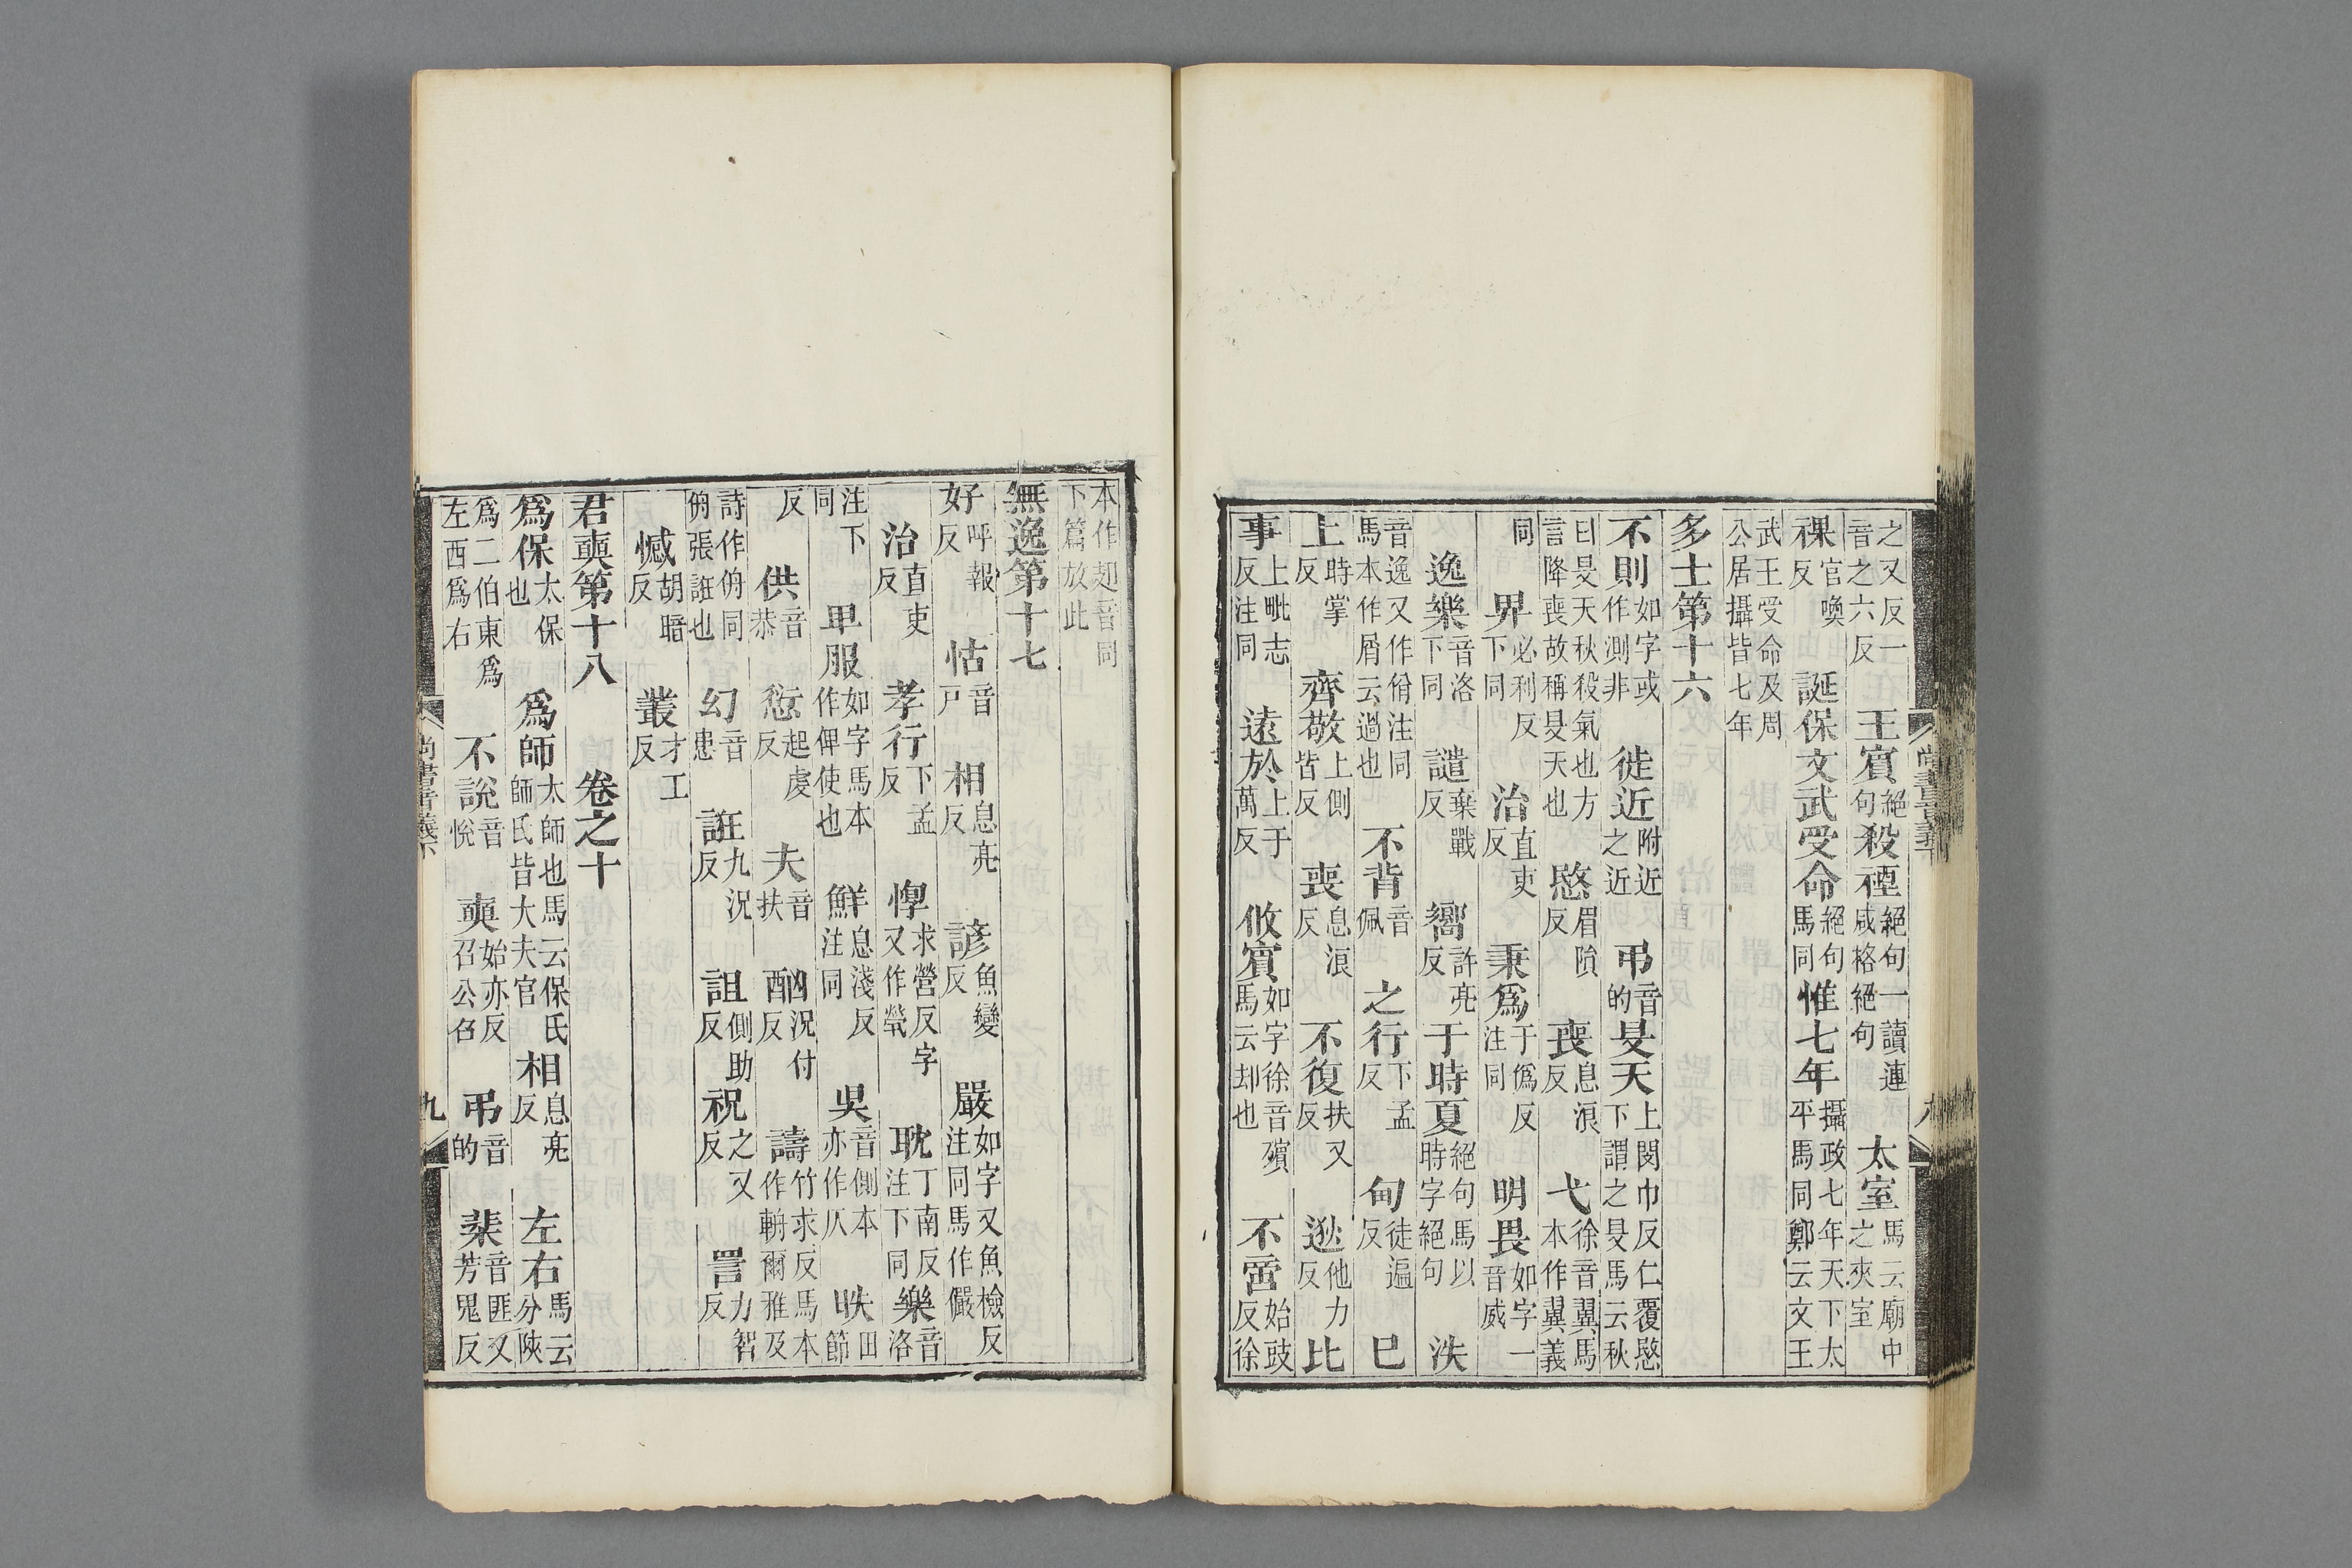 尚書音義下 八
之又反一音之六反 王賓絕句殺禋絕句一讀連咸格絕句 太室馬云廟中之夾室
祼官喚反 誕保文武受命絕句馬同惟七年攝政七年天下太平馬同鄭云文王
武王受命及周公居攝皆七年
多士第十六
不則如字或作測非 徙近附近之近 弔音的旻天上閔巾反仁覆愍下謂之旻馬云秋
曰旻天秋殺氣也方言降喪故稱旻天也 愍眉隕反 喪息浪反 弋徐音翼馬本作翼義
同 畀必利反下同 治直吏反 秉爲于僞反注同 明畏如字一音威
逸樂音洛下同 譴棄戰反 嚮許亮反 于時夏絕句馬以時字絕句 泆
音逸又作佾注同馬本作屑云過也 不背音佩 之行下孟反 甸徒遍反 巳
上時掌反 齊敬上側皆反 喪息浪反 不復扶又反 逖他力反 比
事上毗志反注同 遠於上于萬反 攸賓如字徐音殯馬云却也 不啻始豉反徐
本作翅音同下篇放此
無逸第十七
好呼報反 怙音戸 相息亮反 諺魚變反 嚴如字又魚檢反注同馬作儼
治直吏反 孝行下孟反 惸求營反字又作煢 耽丁南反注下同 樂音洛
注下同 卑服如字馬本作俾使也 鮮息淺反注同 昃音側本亦作仄 昳田節
反 供音恭 愆起虔反 夫音扶 酗況付反 譸竹求反馬本作輈爾雅及
詩作侜同侜張誑也 幻音患 誑九況反 詛側助反 祝之又反 詈力智反
憾胡暗反 叢才工反
君奭第十八 卷之十
爲保太保也 爲師太師也馬云保氏師氏皆大夫官 相息亮反 左右馬云分陝
爲二伯東爲左西爲右 不說音悅 奭始亦反召公名 弔音的 棐音匪又芳鬼反
尚書音義下 九